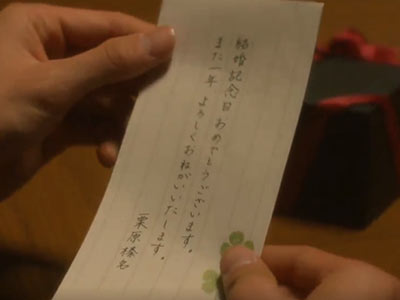 結婚記念日 おめでとうございます。
また一年 よろしくお願いいたします。
栗原榛名